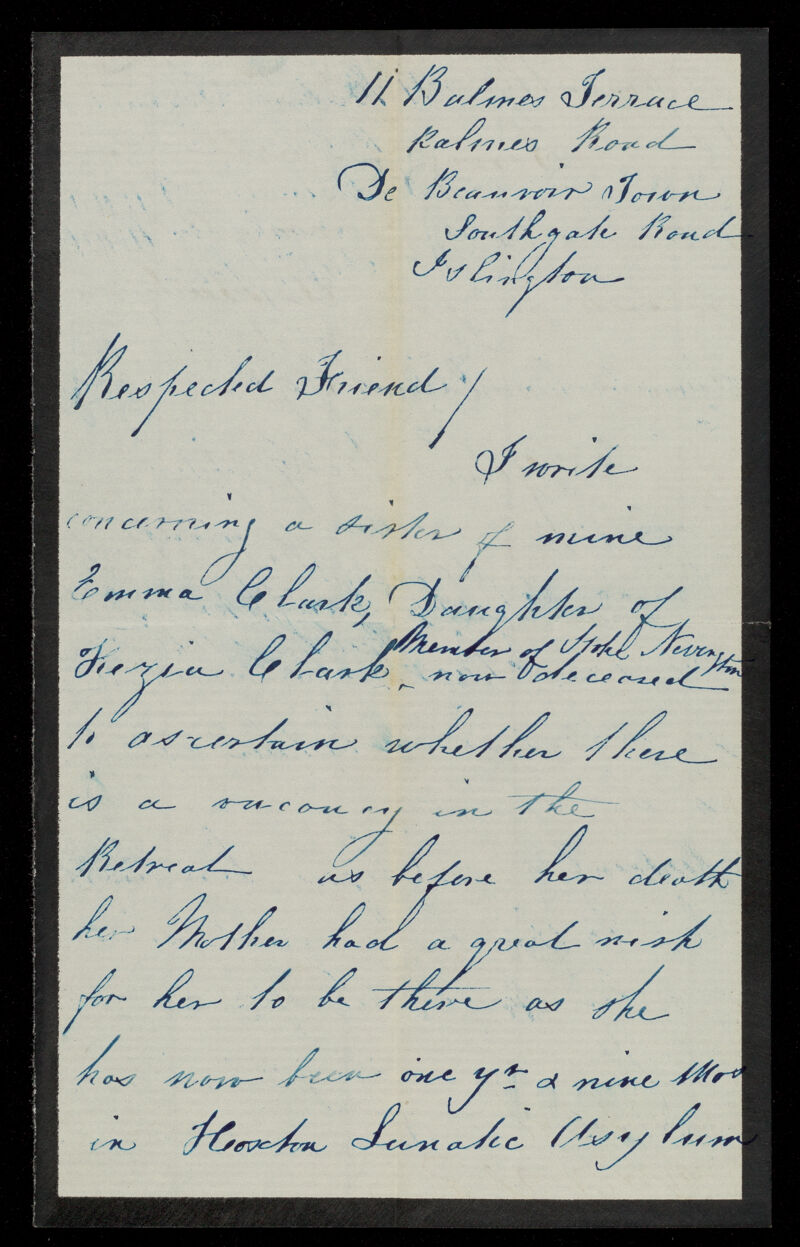 11 Balmes Terrace
Balmes Road
De Beauvoir Town
Southgate Road
Islington
Respected Friend /
I write
concerning a sister of mine
Emma Clark, Daughter of
Member of Stoke Newington
Kezia Clark, now deceased
to ascertain whether there
is a vacancy in the
Retreat as before her death
her Mother had a great wish
for her to be there as she
has now been one yr & nine Mos
in Hoxton Lunatic Asylum